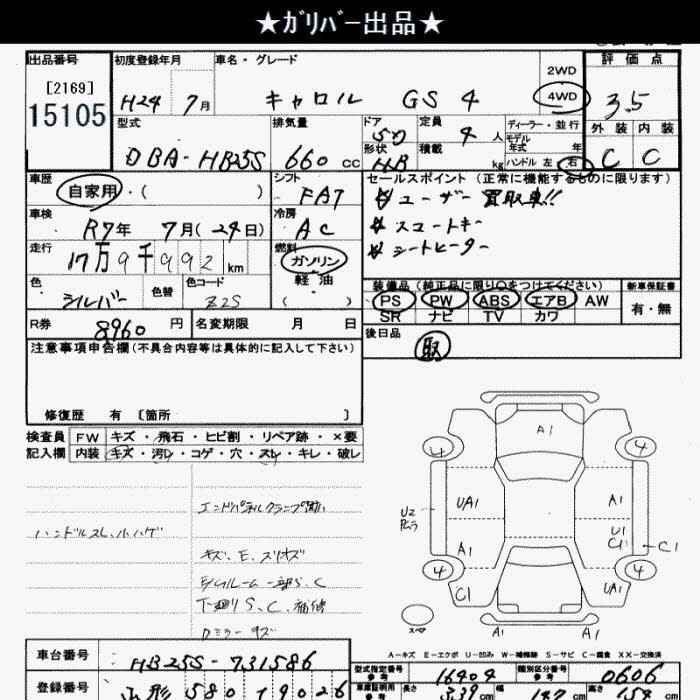 ★ｶﾞﾘﾊﾞｰ出品★
出品番号 初度登録年月 車名・グレード 評価点
[2169] H24 7月 キャロル GS4 2WD 4WD 3.5
15105
型式 排気量 ドア 定員 ディーラー・並行 外装 内装
DBA-HB25S 660cc 5D 4人 モデル年式 年 C C
形状 HB 積載 kg ハンドル 左 右
車歴 シフト セールスポイント(正常に機能するものに限ります)
自家用・( ) FAT ☆ユーザー買取車!!
車検 冷房 ☆スマートキー
R7年 7月(24日) AC ☆シートヒーター
走行 燃料
17万9千992km ガソリン
軽油
色 色替 色コード ( ) 装備品(純正品に限り○をつけてください) 新車保証書
シルバー Z2S PS PW ABS エアB AW 有・無
SR ナビ TV カワ
R券 8960円 名変期限 月 日 後日品
取
注意事項申告欄(不具合内容等は具体的に記入して下さい)
修復歴 有 〔箇所 〕
検査員 FW キズ・飛石・ヒビ割・リペア跡・×要
記入欄 内装 キズ・汚レ・コゲ・穴・スレ・キレ・破レ
ハンドルスレ、小ハゲ
キズ、E、スリキズ
下廻りS、C、補修
Dミラーキズ
A1
4 4
UA1 A1
U2
U1
C1 C1
A1
4 4
C1 UA1
スペア
A1 A1
A-キズ E-エクボ U-凹み W-補修跡 S-サビ C-腐食 XX-交換済
車台番号 HB25S-731586
型式指定番号 参考 16404 類別区分番号 参考 0606
登録番号 山形 580
車庫証明用 参考 長さ 339cm 幅 147cm 高さ 153cm